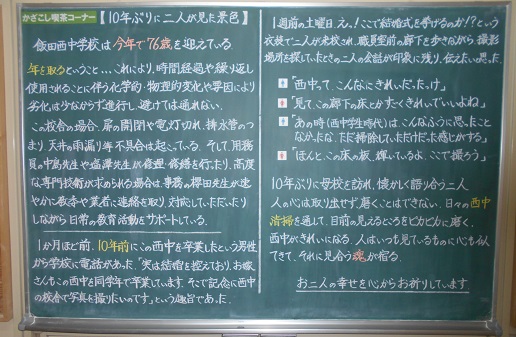 かざこし喫茶コーナー【10年ぶりに二人が見た景色】
飯田西中学校は今年で76歳を迎えている。
年を取るということ...これにより、時間経過や繰り返し
使用されることに伴う化学的・物理的変化や要因により
劣化は少なからず進行し、避けては通れない。
この校舎の場合、扉の開閉や電灯切れ、排水管のつ
まり、天井の雨漏り等不具合は起こっている。そして、用務
員の中島先生や塩澤先生が修理・修繕を行ったり、高度
な専門技術が求められる場合は、事務の櫻田先生が速
やかに教委や業者に連絡を取り、対応していただいたり
しながら日常の教育活動をサポートしている。
1か月ほど前、10年前にこの西中を卒業したという男性
から学校に電話があった。「実は結婚を控えており、お嫁
さんもこの西中を同学年で卒業しています。そこで記念に西中
の校舎で写真を撮りたいのです」という趣旨であった。
1週前の土曜日 えっ!ここで結婚式を挙げるのか!?という
衣装で二人が来校され、職員室前の廊下を歩きながら、撮影
場所を探していたときの二人の会話が印象に残り、伝えたい思った。
「西中って、こんなにきれいだったっけ」
「見て、この廊下の床とか すっごくきれいでいいよね」
「あの時(西中学生時代)は こんなふうに思ったこと
なかったな、ただ掃除していただけだった感じがする」
「ほんと、この床の板、輝いているよ、ここで撮ろう」
10年ぶりに母校を訪れ、懐かしく語り合う二人
人の心は取り出せず、磨くことはできない。日々の西中
清掃を通して、目前の見えるところをピカピカに磨く。
西中がきれいになる。人はいつも見ているものに心も似
てきて、それに見合う魂が宿る。
お二人の幸せを心からお祈りしています。